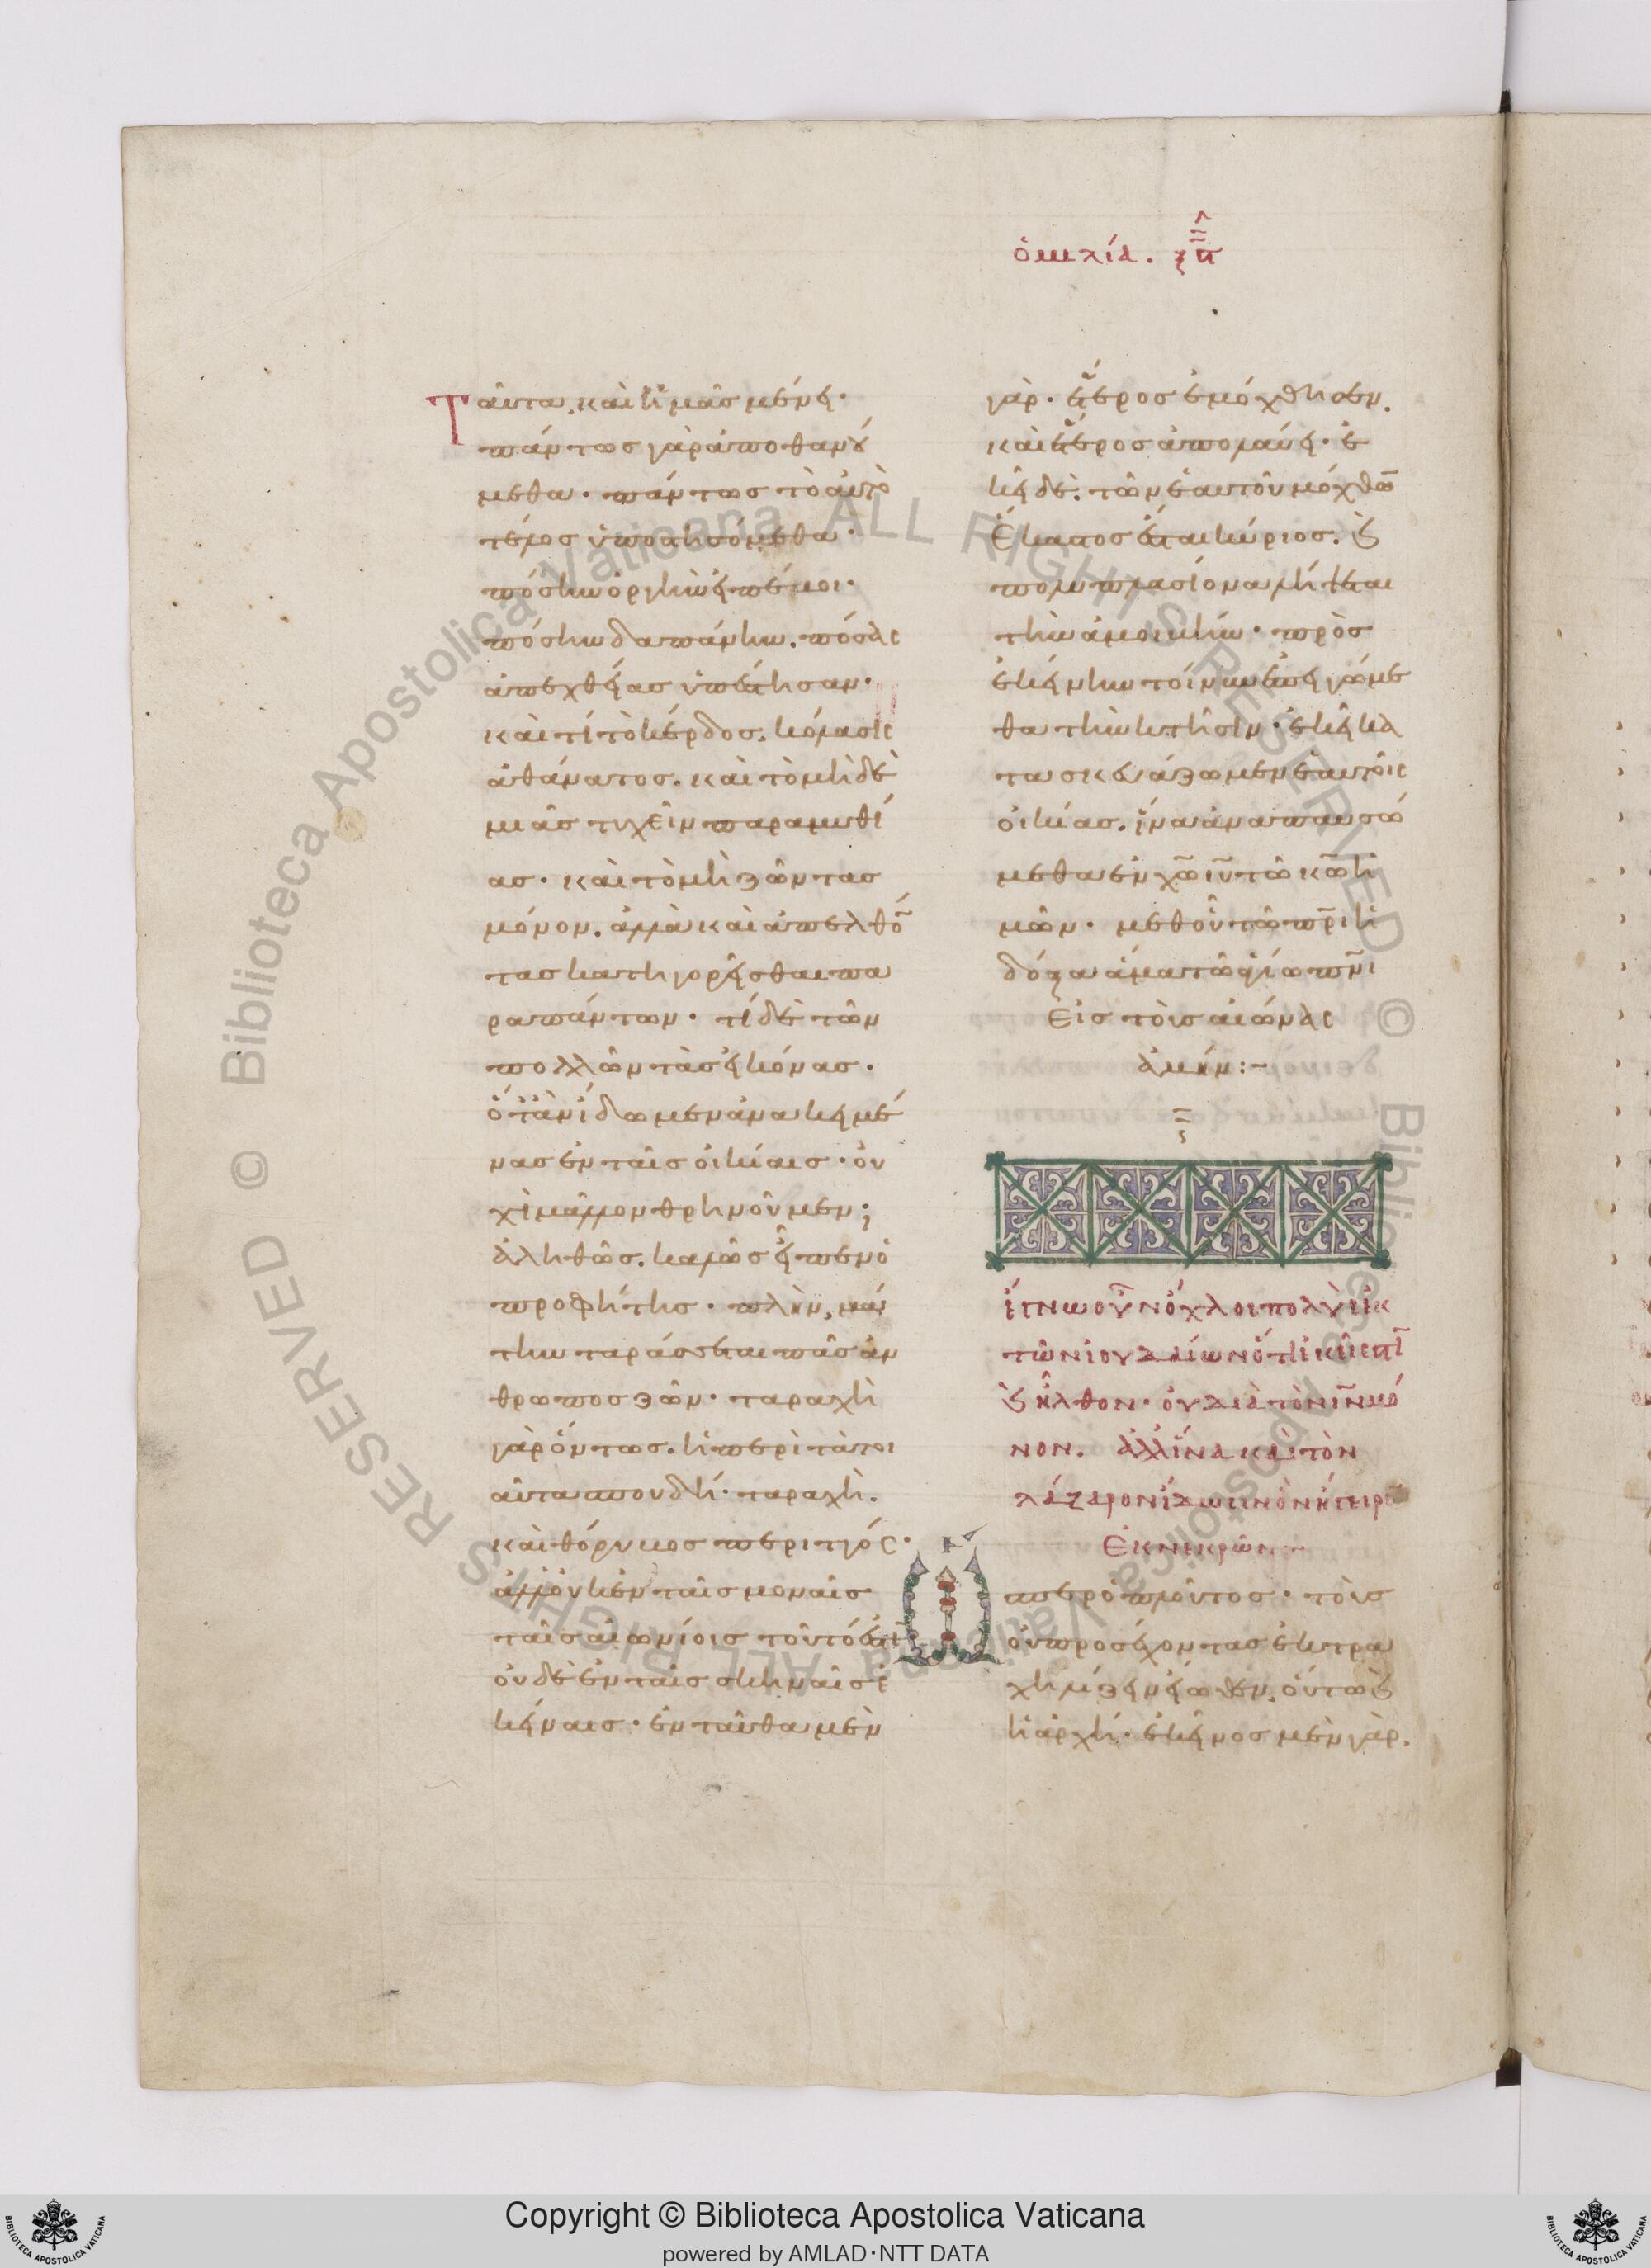 ὁμιλία. ξϛ
Ταῦτα καὶ ἡμᾶς μένει·
πάντως γὰρ ἀποθανού
μεθα· πάντως τὸ αὐτὸ
τέλος ὑποστησόμεθα·
πόσην ὀργὴν εἰπέ μοι·
πόσην δαπάνην. πόσας
ἀπεχθείας ὑπέστησαν·
καὶ τί τὸ κέρδος. κόλασις
ἀθάνατος. καὶ τὸ μηδε
μιᾶς τυχεῖν παραμυθί
ας· καὶ τὸ μὴ ζῶντας
μόνον. ἀλλὰ καὶ ἀπελθό
τας κατηγορεῖσθαι πα
ρα πάντων· τί δὲ τῶν
πολλῶν τὰς εἰκόνας.
ὅταν ἴδωμεν ἀνακειμέ
νας ἐν ταῖς οἰκίαις· οὐ
χὶ μᾶλλον θρηνοῦμεν;
ἀληθῶς. καλῶς εἶπεν ὁ
προφήτης· πλὴν, μά
την ταράσσεται πᾶς ἄν
θρωπος ζῶν· ταραχὴ
γὰρ ὄντως. ἡ περὶ τὰ τοι
αῦτα σπουδή· ταραχὴ.
καὶ θόρυβος περιττός·
ἀλλ' οὐκ ἐν ταῖς μοναῖς
ταῖς αἰωνίοις τοῦτό ἐστι
οὐδὲ ἐν ταῖς σκηναῖς ἐ
κείναις· ἐνταῦθα μὲν
γὰρ· ἕτερος ἐμόχθησεν.
καὶ ἕτερος ἀπολαύει· ἐ
κεῖ δὲ. τῶν ἑαυτοῦ μόχθω
ἕκαστος ἔσται κύριος. καὶ
πολυπλασίονα λήψεται
τὴν ἀμοιβήν· πρὸς
ἐκείνην τοίνυν ἐπειγώμε
θα τὴν κτῆσιν· ἐκεῖ κα
τασκευάζωμεν ἑαυτοῖς
οἰκίας. ἵνα ἀναπαυσώ
μεθα ἐν χω ιυ τῶ κω ἡ
μῶν· μεθ' οὗ τῶ πρι ἡ
δόξα ἅμα τῶ ἁγίω πνι
εἰς τοὺς αἰῶνας
ἀμήν:-
ἔγνω οὖν ὄχλος πολὺς ἐκ
τῶν ἰουδαίων ὅτι ἐκεῖ ἐστι
καὶ ἦλθον· οὐ διὰ τὸν ιν μό
νον. ἀλλ' ἵνα καὶ τὸν
λάζαρον ἴδωσιν ὃν ἤγειρε
ἐκ νεκρῶν:-
Ὥσπερ ὁ πλοῦτος· τοὺς
οὐ προσέχοντας ἐκτρα
χηλίζειν εἴωθεν. οὕτω καὶ
ἡ ἀρχή· ἐκεῖνος μὲν γὰρ.
Copyright © Biblioteca Apostolica Vaticana
powered by AMLAD·NTT DATA